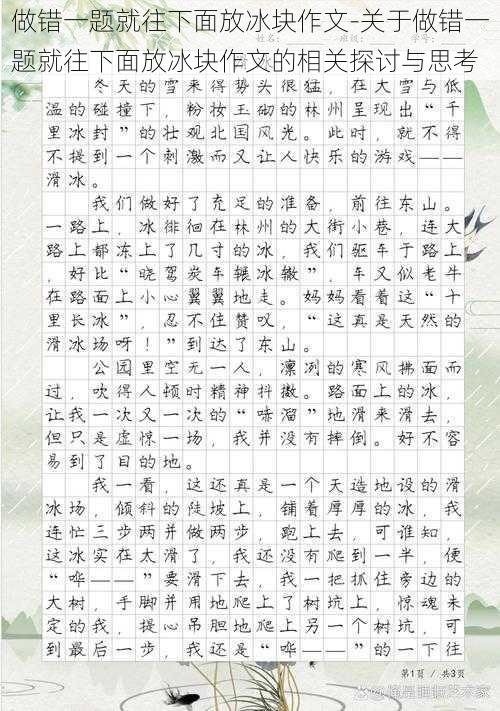 做错一题就往下面放冰块作文-关于做错一
题就往下面放冰块作文的相关探讨与思考
冬天的雪来得势头很猛，在大雪与低
温的碰撞下，粉妆玉砌的林州呈现出“千
里冰封”的壮观北国风光。此时，就不得
不提到一个刺激而又让人快乐的游戏——
滑冰。
我们做好了充足的准备，前往东山。
一路上，冰徘徊在林州的大街小巷，连大
路上都冻上了几寸的冰，我们驱车于路上
，好比“晓驾炭车辗冰辙”，车又似老牛
在路面上小心翼翼地走。妈妈看着这“十
里长冰”，忍不住赞叹，“这真是天然的
滑冰场呀！”到达了东山。
公园里空无一人，凛冽的寒风拂面而
过，吹得人顿时精神抖擞。路面上的冰，
让我一次又一次的“哧溜”地滑来滑去，
但只是虚惊一场，我并没有摔倒。好不容
易到了目的地。
我一看，这还真是一个天造地设的滑
冰场，倾斜的陡坡上，铺着厚厚的冰，我
连忙三步两并做两步，跑上去，可谁知，
这冰实在太滑了，我还没有爬到一半，便
“哗——”要滑下去，我一把抓住旁边的
大树，手脚并用地爬上了树坑上，惊魂未
定的我，提心吊胆地爬上另一个树坑，可
到最后一步，我还是“哗——”的一下往
第1页 / 共3页